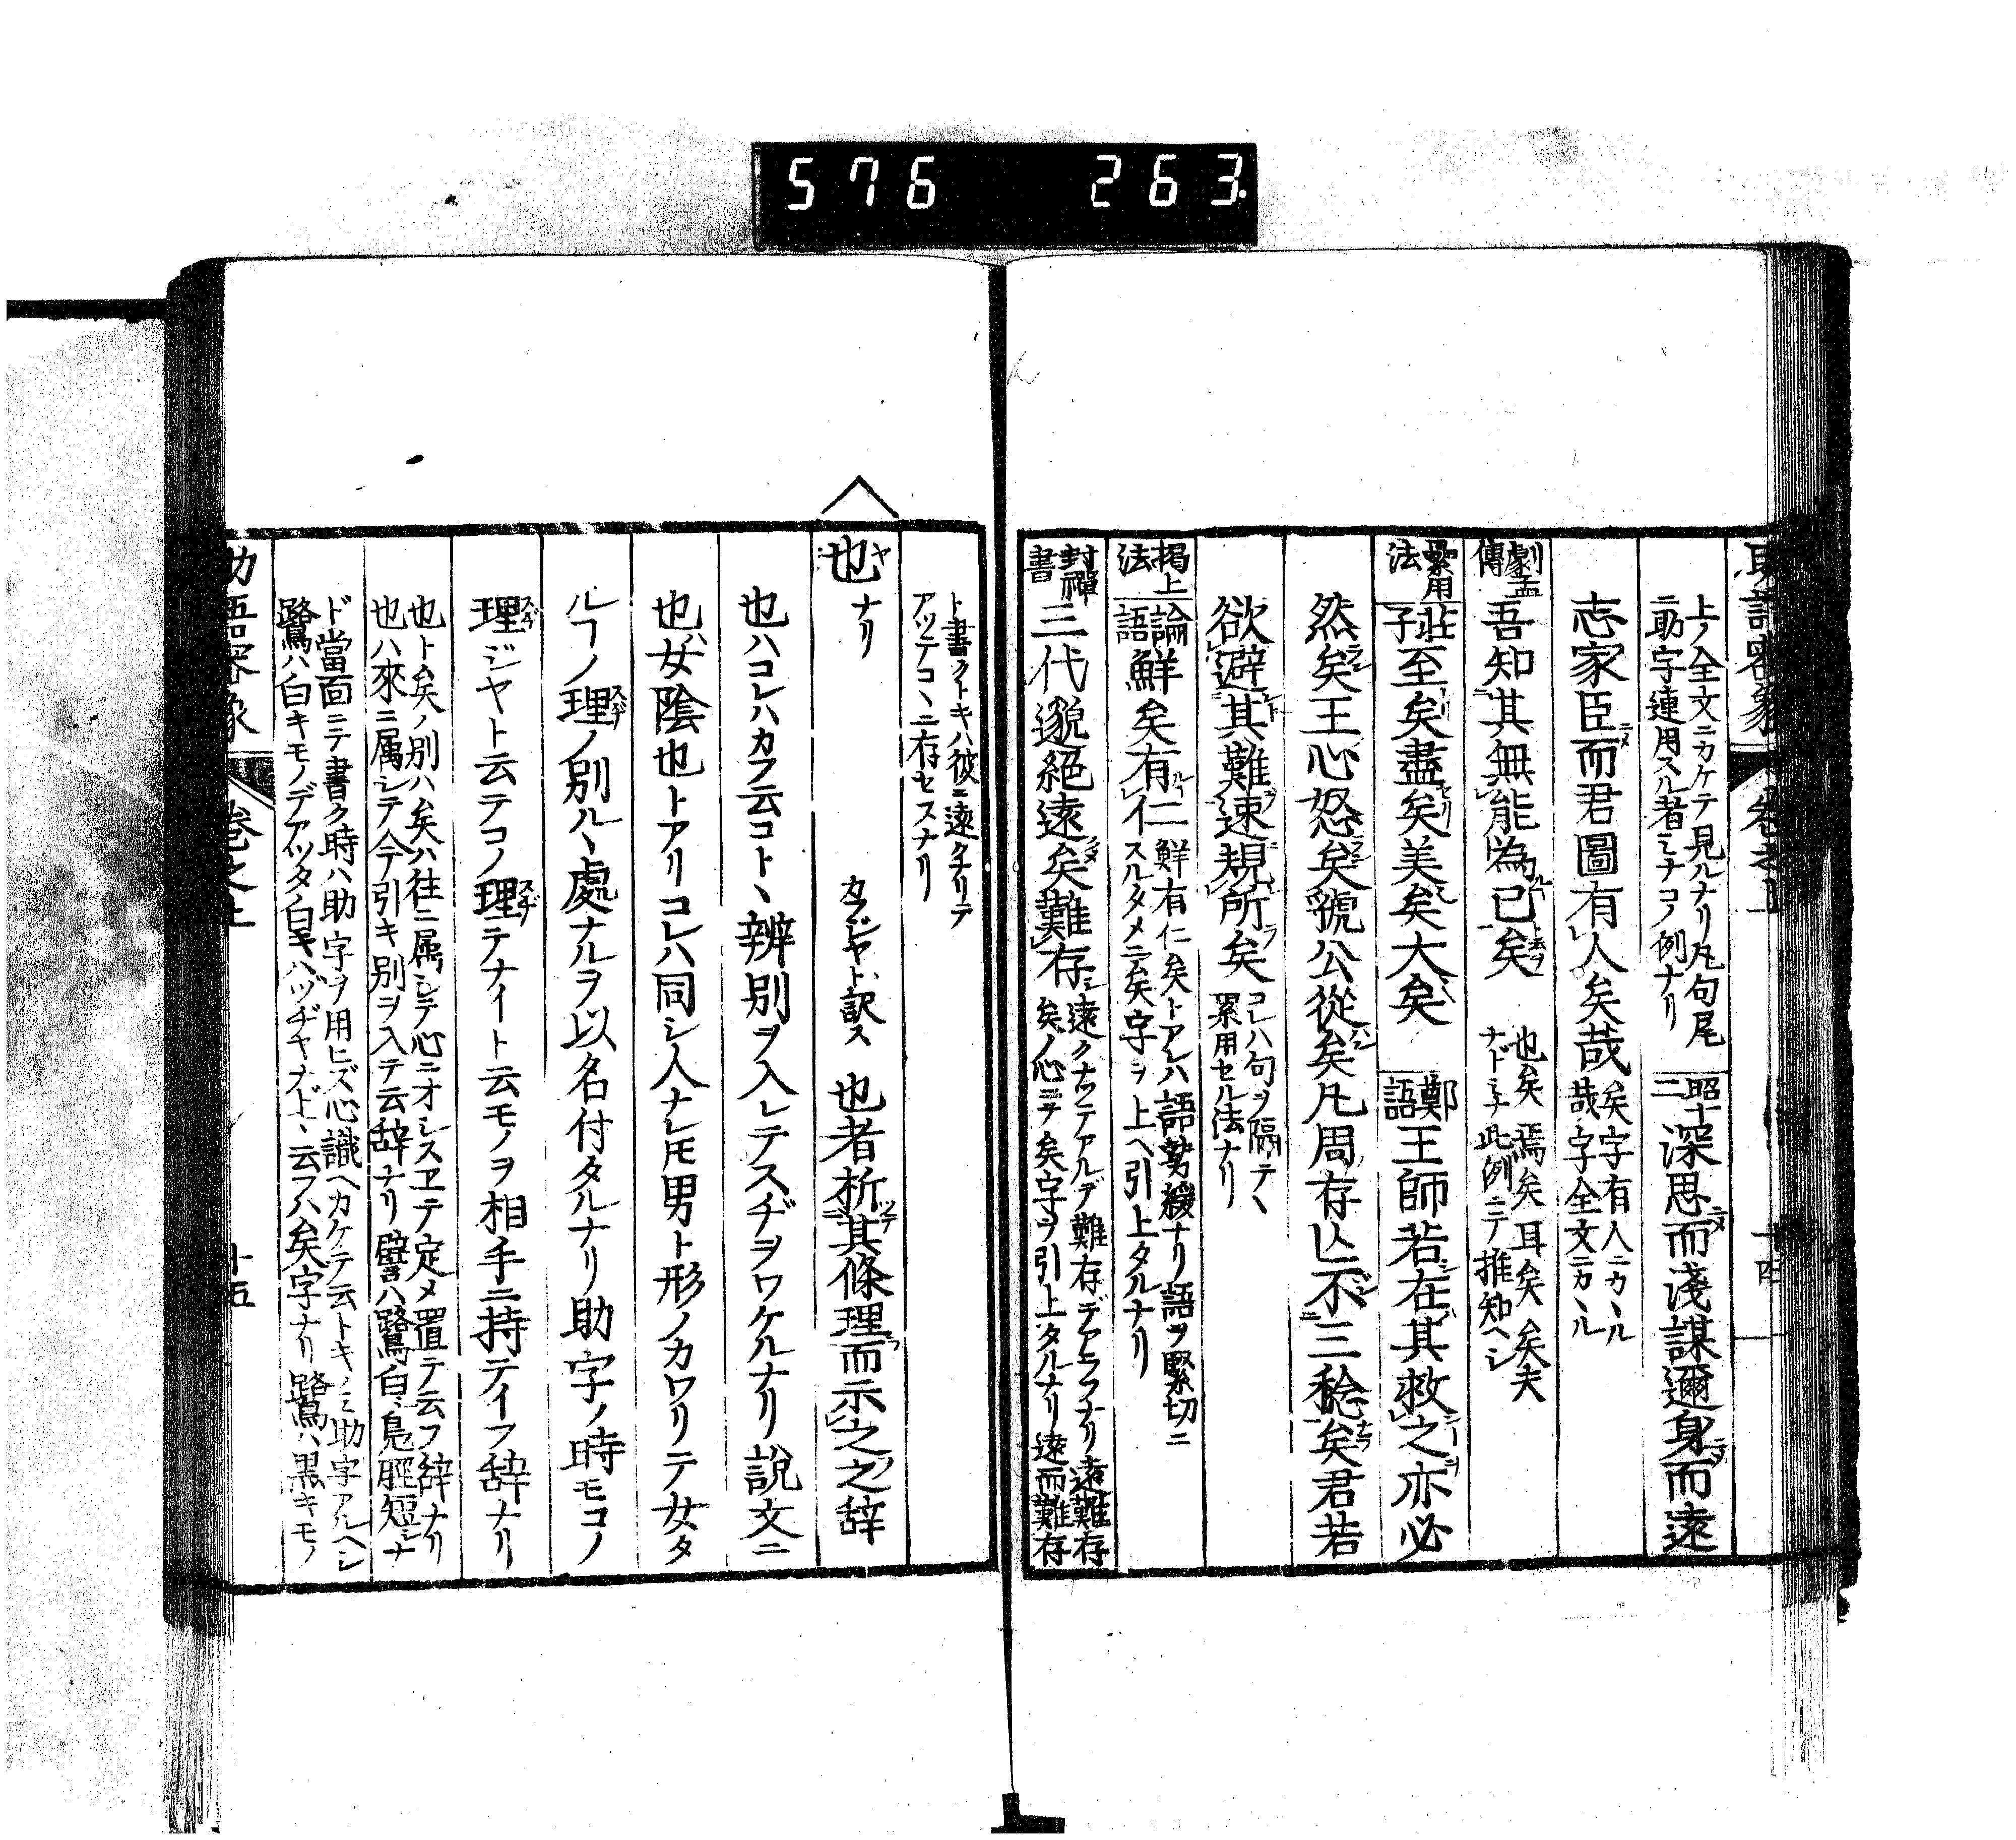 576 263.
上ノ全文ニカケテ見ルナリ凡句尾
ニ助字連用スル者ミナコノ例ナリ
昭十二
深思而淺謀邇身而遠
志家臣而君圖有人矣哉
矣字有人ニカヽル
哉字全文ニカヽル
劇孟傳
吾知其無能為已矣
也矣焉矣耳矣矣夫
ナドミナ此例ニテ推知ヘシ
累用法
莊子
至矣盡矣美矣大矣
鄭語
王師若在其救之亦必
然矣王心怒矣虢公從矣凡周存亾不三稔矣君若
欲避其難速規所矣
コレハ句ヲ隔テヽ
累用セル法ナリ
掲上法
論語
鮮矣有仁
鮮有仁矣トアレハ語勢緩ナリ語ヲ緊切ニ
スルタメニ矣字ヲ上ヘ引上タルナリ
封禪書
三代邈絕遠矣難存
遠クナツテアルデ難存デアラフナリ遠難存
矣ノ心ニテ矣字ヲ引上タルナリ遠而難存
ト書クトキハ彼ニ遠クナリテ
アツテコヽニ存セスナリ
也 ヤ ナリ
カラジヤト訳ス
也者析其條理而示之之辞
也ハコレハカフ云コトヽ辨別ヲ入レテスヂヲワケルナリ說文ニ
也ハ女陰也トアリコレハ同シ人ナレモ男ト形ノカワリテ女タ
ルヿノ理ノ別ルヽ處ナルヲ以名付タルナリ助字ノ時モコノ
理ジヤト云テコノ理テナイト云モノヲ相手ニ持テイフ辞ナリ
也ト矣ノ別ハ矣ハ往ニ属シテ心ニオシスヱテ定メ置テ云フ辞ナリ
也ハ來ニ属シテ今引キ別ヲ入テ云辞ナリ譬ハ鷺白シ鳧脛短シナ
ド當面ニテ書ク時ハ助字ヲ用ヒズ心識ヘカケテ云トキノミ助字アルヘシ
鷺ハ白キモノデアツタ白キハヅヂヤナドヽ云フハ矣字ナリ鷺ハ黒キモノ
十五